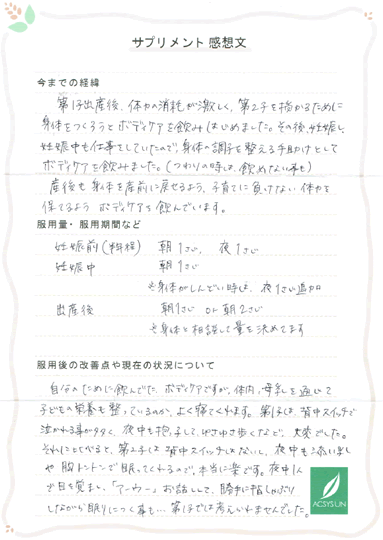 サプリメント 感想文
今までの経緯
第1子出産後、体力の消耗が激しく、第2子を授かるために
身体をつくろうとボディケアを飲みはじめました。その後、妊娠し、
妊娠中も仕事をしていたので、身体の調子を整える手助けとして
ボディケアを飲みました。(つわりの時は、飲めない事も)
産後も身体を産前に戻せるよう、子育てに負けない体力を
保てるようボディケアを飲んでいます。
服用量・服用期間など
妊娠前 朝1さじ、夜1さじ
妊娠中 朝1さじ
※身体がしんどい時は、夜1さじ追加
出産後 朝1さじ or 朝2さじ
※身体と相談して量を決めてます
服用後の改善点や現在の状況について
自分のために飲んでたボディケアですが、体内、母乳を通じて
子どもの栄養も整っているのか、よく寝てくれます。第1子は、背中スイッチで
泣かれる事が多く、夜中も抱っこして、ゆさゆさ歩くなど、大変でした。
それにくらべると、第2子は背中スイッチはないし、夜中も添い寝し
や服トントンで眠ってくれるので、本当に楽です。夜中1人
で目を覚まし、「アーウー」お話しして、勝手に指しゃぶり
しながら眠りにつく事も…第1子では考えられませんでした。
ACSYS LIN